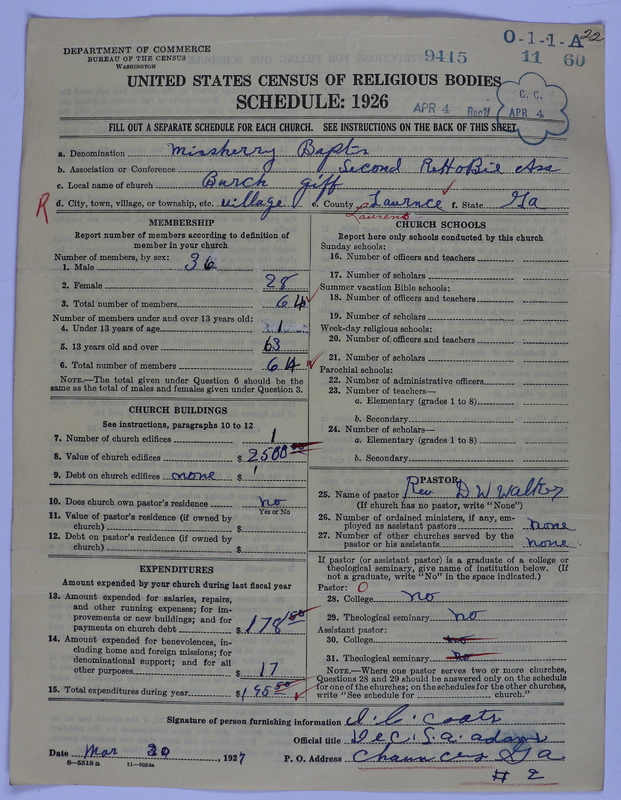 DEPARTMENT OF COMMERCE
BUREAU OF THE CENSUS
WASHINGTON
9415
O-1-1-A 22
11 60
UNITED STATES CENSUS OF RELIGIOUS BODIES
SCHEDULE: 1926
APR 4 Rec'd
C. C.
APR 4
FILL OUT A SEPARATE SCHEDULE FOR EACH CHURCH. SEE INSTRUCTIONS ON THE BACK OF THIS SHEET
a. Denomination Missherry Bapts
b. Association or Conference Second ReHoBie Ass
c. Local name of church Burch giff
R d. City, town, village, or township, etc. village e. County Laurnce f. State Ga
Laurens
MEMBERSHIP
Report number of members according to definition of
member in your church
Number of members, by sex:
1. Male 36
2. Female 28
3. Total number of members 64
Number of members under and over 13 years old:
4. Under 13 years of age 1
5. 13 years old and over 63
6. Total number of members 64
NOTE.—The total given under Question 6 should be
same as the total of males and females given under Question 3.
CHURCH BUILDINGS
See instructions, paragraphs 10 to 12
7. Number of church edifices 1
8. Value of church edifices $ 2500 00
9. Debt on church edifices none $
10. Does church own pastor's residence no
Yes or No
11. Value of pastor's residence (if owned by
church) $
12. Debt on pastor's residence (if owned by
church) $
EXPENDITURES
Amount expended by your church during last fiscal year
13. Amount expended for salaries, repairs,
and other running expenses; for im-
provements or new buildings; and for
payments on church debt $ 178 50
14. Amount expended for benevolences, in-
cluding home and foreign missions; for
denominational support; and for all
other purposes $ 17
15. Total expenditures during year $ 195 50
CHURCH SCHOOLS
Report here only schools conducted by this church
Sunday schools:
16. Number of officers and teachers
17. Number of scholars
Summer vacation Bible schools:
18. Number of officers and teachers
19. Number of scholars
Week-day religious schools:
20. Number of officers and teachers
21. Number of scholars
Parochial schools:
22. Number of administrative officers
23. Number of teachers—
a. Elementary (grades 1 to 8)
b. Secondary
24. Number of scholars—
a. Elementary (grades 1 to 8)
b. Secondary
PASTOR
25. Name of pastor Rev D. W Walker
(If church has no pastor, write "None")
26. Number of ordained ministers, if any, em-
ployed as assistant pastors none
27. Number of other churches served by the
pastor or his assistants none
If pastor (or assistant pastor) is a graduate of a college or
theological seminary, give name of institution below. (If
not a graduate, write "No" in the space indicated.)
Pastor: O
28. College no
29. Theological seminary no
Assistant pastor:
30. College no
31. Theological seminary no
NOTE.—Where one pastor serves two or more churches,
Questions 28 and 29 should be answered only on the schedule
for one of the churches; on the schedules for the other churches,
write "See schedule for church."
Signature of person furnishing information I. C. Coats
Official title Dec. S. a. adams
Date Mar 30, 1927 P. O. Address Chauncey Ga
8—5518 a
# 2